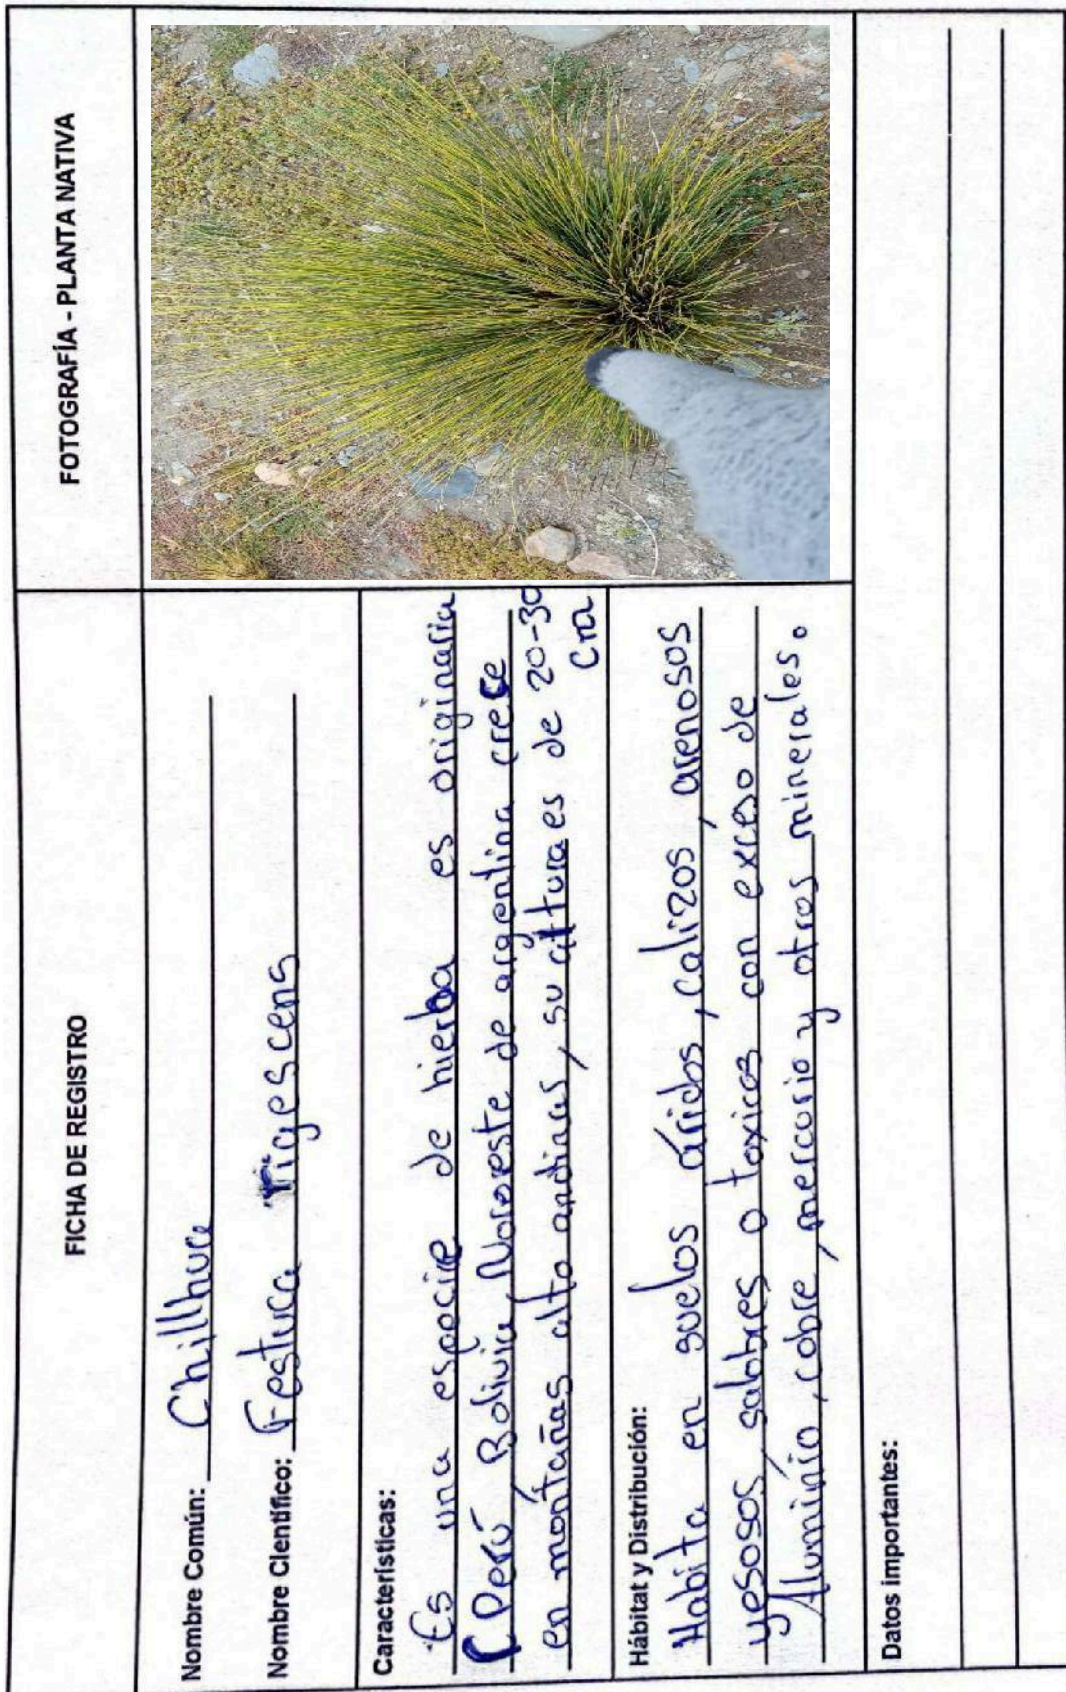 FICHA DE REGISTRO
FOTOGRAFÍA - PLANTA NATIVA
Nombre Común: Chillhua
Nombre Científico: Festuca rigescens
Características:
Es una especie de hierba es originaria
(Perú Bolivia, Noroeste de argentina crece
en montañas alto andinas, su altura es de 20-30
Cm
Hábitat y Distribución:
Habita en suelos áridos, calizos, arenosos
yesosos, salobres o toxicos con exceso de
Aluminio, cobre, mercurio y otros minerales.
Datos importantes: